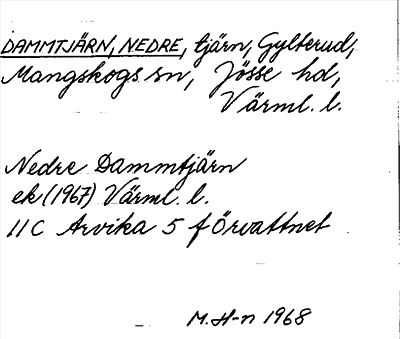 DAMMTJÄRN, NEDRE, tjärn, Gylterud,
Mangskogs sn, Jösse hd,
Värml. l.
Nedre Dammtjärn
ek (1967) Värml. l.
11 C Arvika 5 f Örvattnet
M. H-n 1968